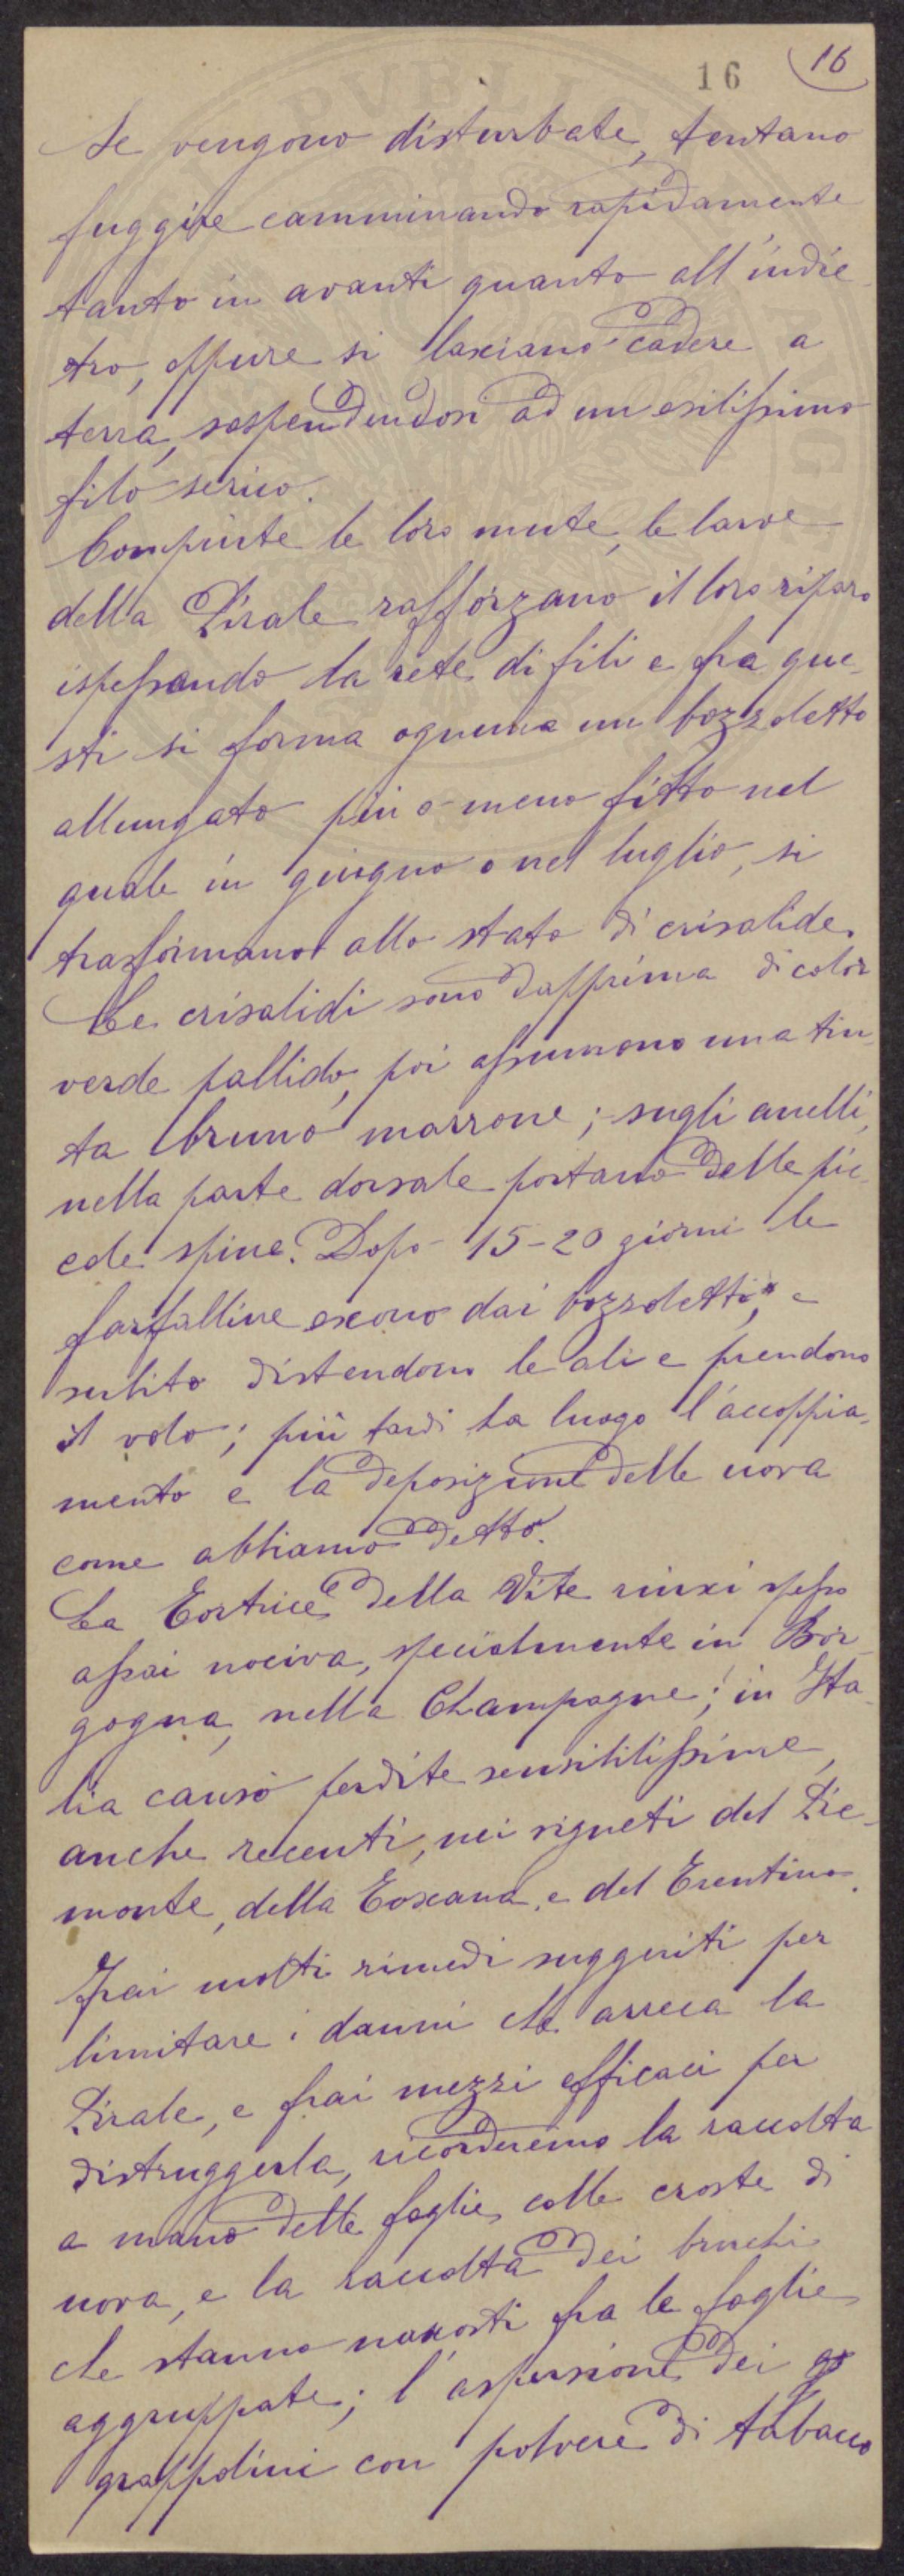 16 16
Se vengono disturbate, tentano
fuggire camminando rapidamente
tanto in avanti quanto all'indie-
tro, oppure si lasciano cadere a
terra, sospendendosi ad un esilissimo
filo serico.
Compiute le loro mute, le larve
della Pirale rafforzano il loro riparo
ispessando la rete di fili e fra que-
sti si forma ognuna un bozzoletto
allungato più o meno fitto nel
quale in giugno o nel luglio, si
trasformano allo stato di crisalide.
Le crisalidi sono dapprima di color
verde pallido, poi assumono una tin-
ta bruno marrone; sugli anelli,
nella parte dorsale portano delle pic-
cole spine. Dopo 15-20 giorni le
farfalline escono dai bozzoletti, e
subito distendono le ali e prendono
il volo; più tardi ha luogo l'accoppia-
mento e la deposizione delle uova
come abbiamo detto.
La Tortrice della Vite riuscì spesso
assai nociva, specialmente in Bor-
gogna, nella Champagne; in Ita-
lia causò perdite sensibilissime,
anche recenti, nei vigneti del Pie-
monte, della Toscana, e del Trentino.
Frai molti rimedi suggeriti per
limitare i danni che arreca la
Pirale, e frai mezzi efficaci per
distruggerla, ricorderemo la raccolta
a mano delle foglie colle croste di
uova, e la raccolta dei bruchi
che stanno nascosti fra le foglie
aggruppate; l'aspersione dei
grappolini con polvere di tabacco